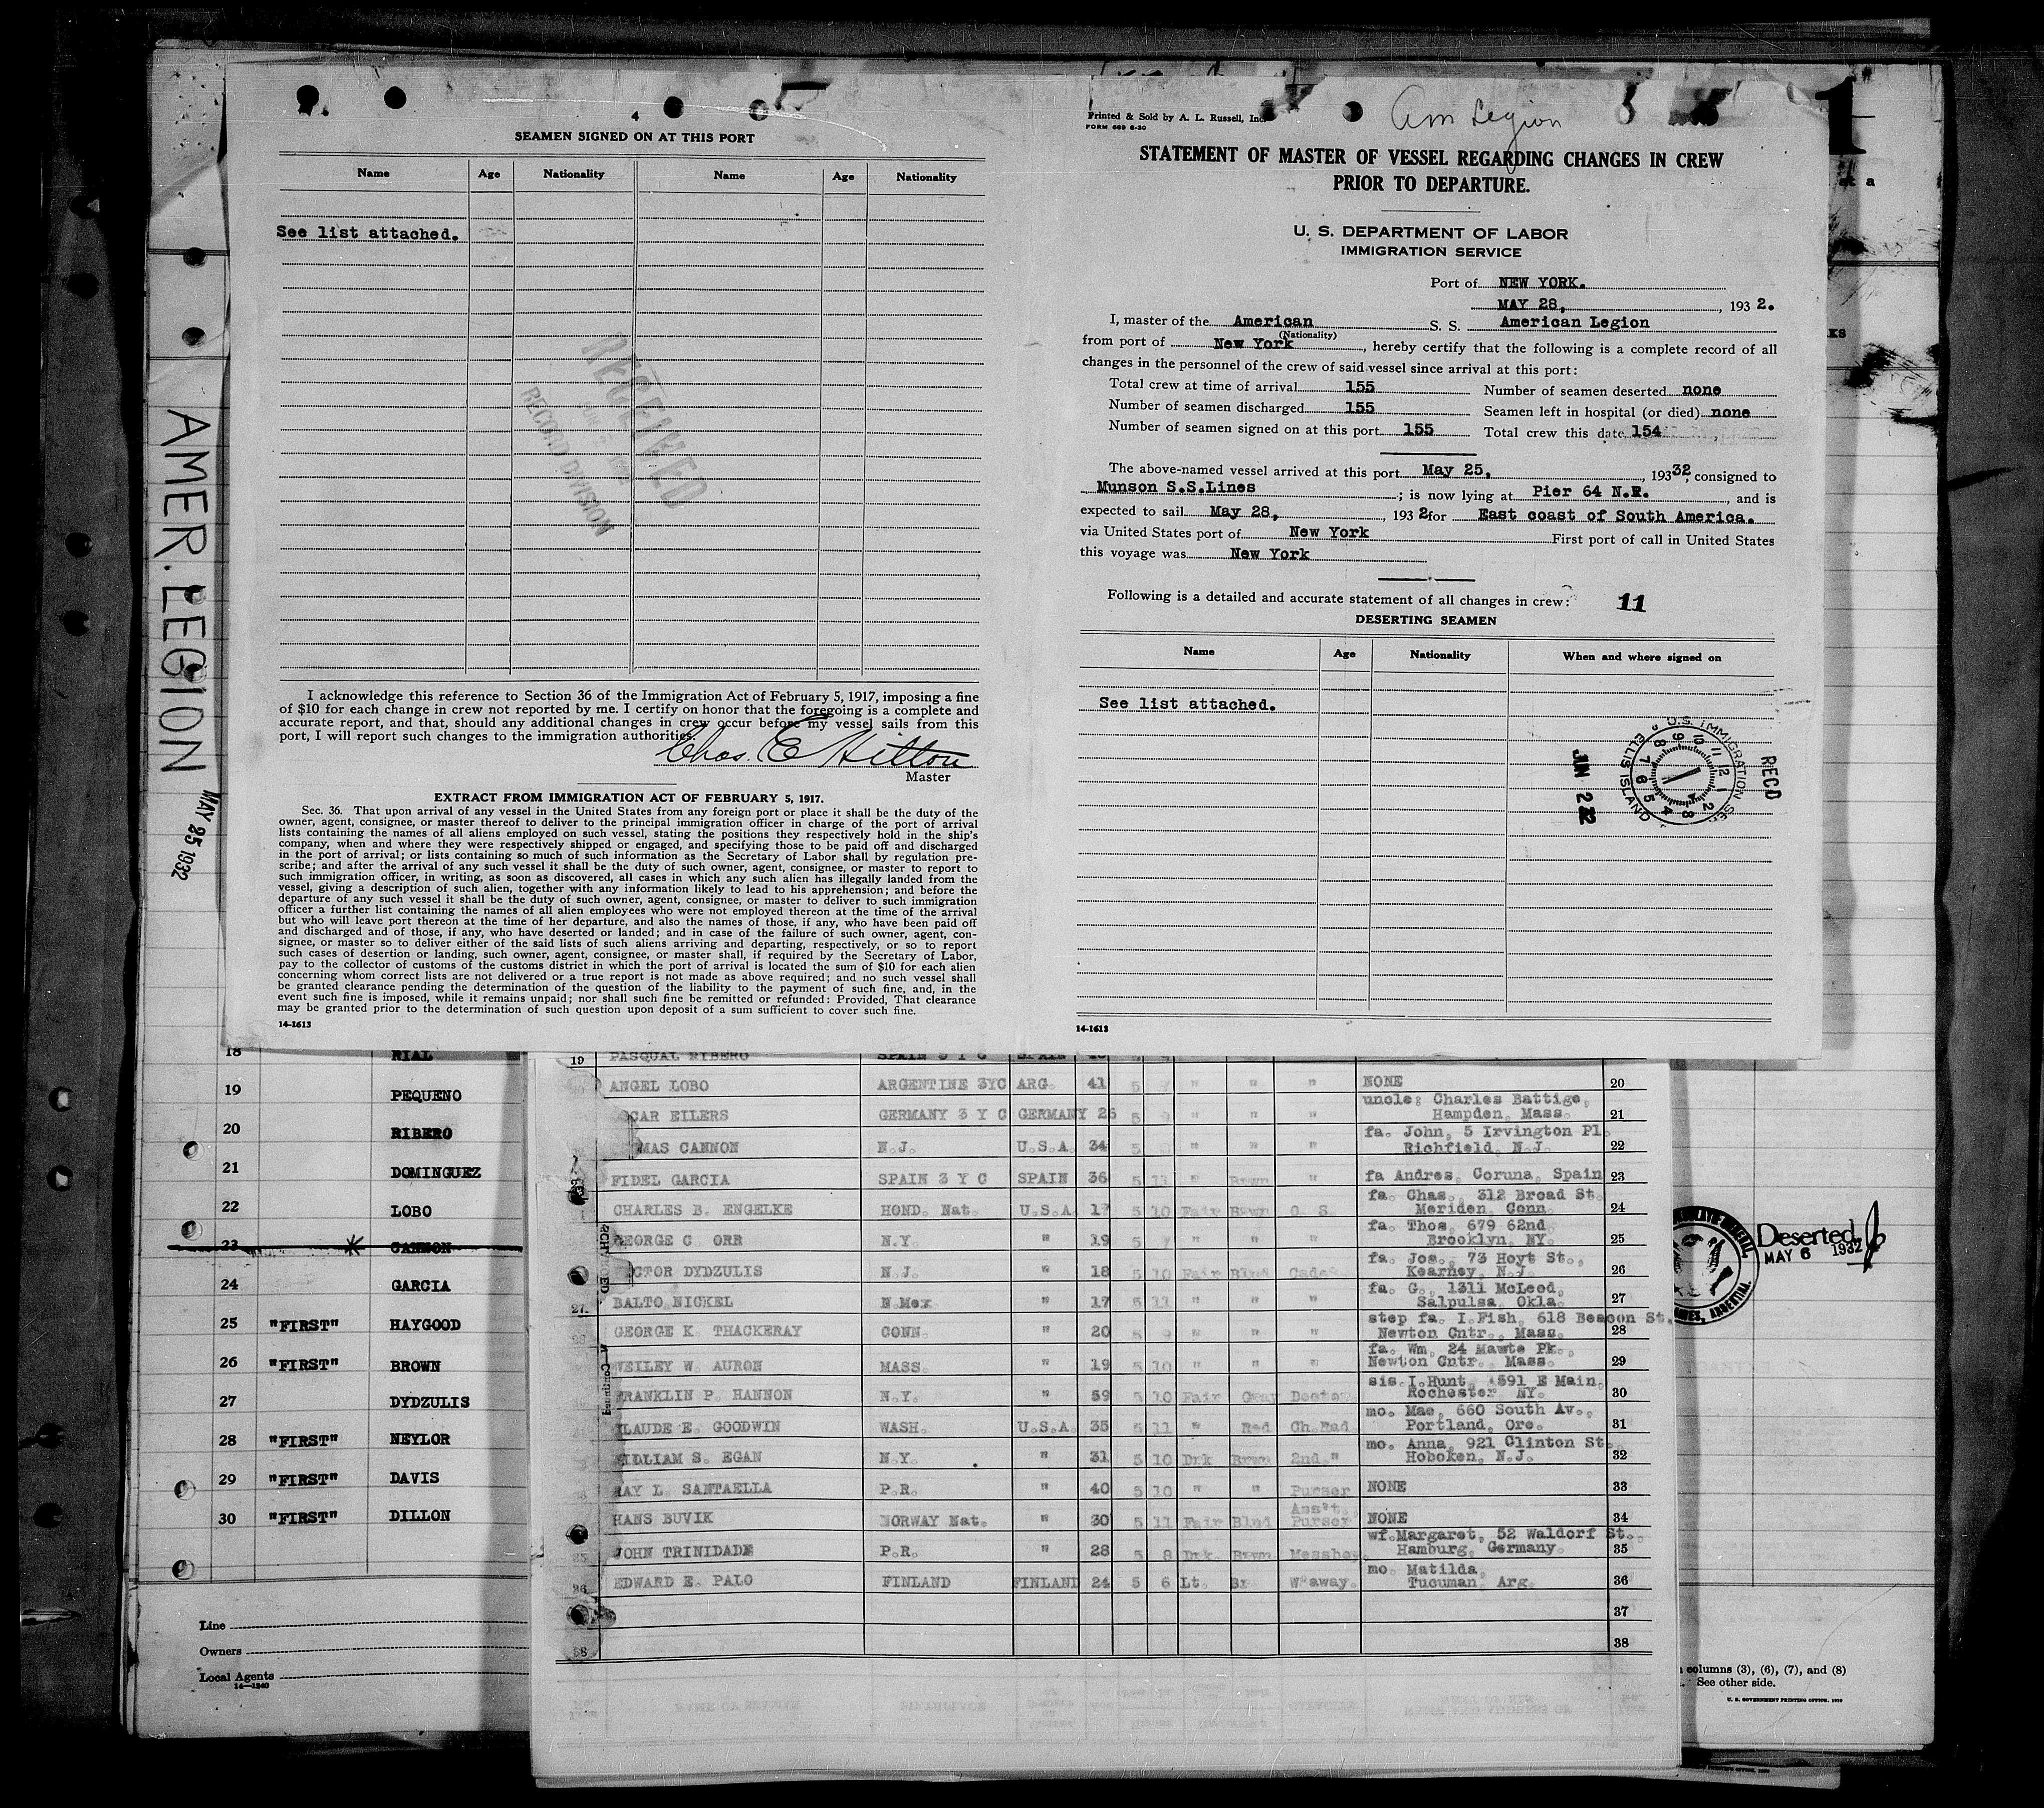 4
SEAMEN SIGNED ON AT THIS PORT
Name Age Nationality Name Age Nationality
See list attached.
RECEIVED
RECORD DIVISION
I acknowledge this reference to Section 36 of the Immigration Act of February 5, 1917, imposing a fine
of $10 for each change in crew not reported by me. I certify on honor that the foregoing is a complete and
accurate report, and that, should any additional changes in crew occur before my vessel sails from this
port, I will report such changes to the immigration authorities.
Chas. E Hilton
Master
EXTRACT FROM IMMIGRATION ACT OF FEBRUARY 5, 1917.
Sec. 36. That upon arrival of any vessel in the United States from any foreign port or place it shall be the duty of the
owner, agent, consignee, or master thereof to deliver to the principal immigration officer in charge of the port of arrival
lists containing the names of all aliens employed on such vessel, stating the positions they respectively hold in the ship's
company, when and where they were respectively shipped or engaged, and specifying those to be paid off and discharged
in the port of arrival; or lists containing so much of such information as the Secretary of Labor shall by regulation pre-
scribe; and after the arrival of any such vessel it shall be the duty of such owner, agent, consignee, or master to report to
such immigration officer, in writing, as soon as discovered, all cases in which any such alien has illegally landed from the
vessel, giving a description of such alien, together with any information likely to lead to his apprehension; and before the
departure of any such vessel it shall be the duty of such owner, agent, consignee, or master to deliver to such immigration
officer a further list containing the names of all alien employees who were not employed thereon at the time of the arrival
but who will leave port thereon at the time of her departure, and also the names of those, if any, who have been paid off
and discharged and of those, if any, who have deserted or landed; and in case of the failure of such owner, agent, con-
signee, or master so to deliver either of the said lists of such aliens arriving and departing, respectively, or so to report
such cases of desertion or landing, such owner, agent, consignee, or master shall, if required by the Secretary of Labor,
pay to the collector of customs of the customs district in which the port of arrival is located the sum of $10 for each alien
concerning whom correct lists are not delivered or a true report is not made as above required; and no such vessel shall
be granted clearance pending the determination of the question of the liability to the payment of such fine, and, in the
event such fine is imposed, while it remains unpaid; nor shall such fine be remitted or refunded: Provided, That clearance
may be granted prior to the determination of such question upon deposit of a sum sufficient to cover such fine.
14-1613
Printed & Sold by A. L. Russell, Inc.
FORM 689 6-30
Am Legion
STATEMENT OF MASTER OF VESSEL REGARDING CHANGES IN CREW
PRIOR TO DEPARTURE.
U. S. DEPARTMENT OF LABOR
IMMIGRATION SERVICE
Port of NEW YORK.
MAY 28, 1932.
I, master of the American S. S. American Legion
(Nationality)
from port of New York, hereby certify that the following is a complete record of all
changes in the personnel of the crew of said vessel since arrival at this port:
Total crew at time of arrival 155 Number of seamen deserted none
Number of seamen discharged 155 Seamen left in hospital (or died) none
Number of seamen signed on at this port 155 Total crew this date 154
The above-named vessel arrived at this port May 25, 19332, consigned to
Munson S.S.Lines; is now lying at Pier 64 N.R., and is
expected to sail May 28, 1932 for East coast of South America.
via United States port of New York First port of call in United States
this voyage was New York
Following is a detailed and accurate statement of all changes in crew: 11
DESERTING SEAMEN
Name Age Nationality When and where signed on
See list attached.
REC'D
U.S. IMMIGRATION SER
ELLIS ISLAND
JUN 2 32
14-1613
1
AMER. LEGION
MAY 25 1932
18 RIAL
19 PEQUENO
20 RIBERO
21 DOMINGUEZ
22 LOBO
23 CANNON
24 GARCIA
25 "FIRST" HAYGOOD
26 "FIRST" BROWN
27 DYDZULIS
28 "FIRST" NEYLOR
29 "FIRST" DAVIS
30 "FIRST" DILLON
Line
Owners
Local Agents
14-1240
19 PASQUAL RIBERO SPAIN 3 Y C SPAIN
ANGEL LOBO ARGENTINE 3YC ARG. 41 5 " " " NONE 20
CAR EILERS GERMANY 3 Y C GERMANY 26 5 9 " " " uncle: Charles Battige,
Hampden, Mass. 21
MAS CANNON N.J. U.S.A. 34 5 " " " fa. John, 5 Irvington Pl.
Richfield, N.J. 22
FIDEL GARCIA SPAIN 3 Y C SPAIN 36 5 11 " Brwn " fa Andres, Coruna, Spain 23
CHARLES B. ENGELKE HOND. Nat. U.S.A. 17 5 10 Fair Brwn O. S. fa. Chas., 312 Broad St.
Meriden, Conn. 24
GEORGE C. ORR N.Y. " 19 5 7 " " " fa. Thos, 679 62nd,
Brooklyn, NY. 25
CTOR DYDZULIS N.J. " 18 5 10 Fair Blnd Cadet fa. Jos., 73 Hoyt St.,
Kearney, N.J. 26
27 BALTO NICKEL N.Mex " 17 5 11 " " " fa. G., 1311 McLeod,
Salpulsa, Okla. 27
GEORGE K. THACKERAY CONN. " 20 5 9 " " " step fa. I.Fish, 618 Beacon St.
Newton Cntr., Mass. 28
WEILEY W. AURON MASS. " 19 5 10 " " " fa. Wm, 24 Mawte Pk.,
Newton Cntr., Mass. 29
FRANKLIN P. HANNON N.Y. " 59 5 10 Fair Gray Doctor sis.I.Hunt, 1591 E Main,
Rochester NY. 30
CLAUDE E. GOODWIN WASH. U.S.A. 35 5 11 " Red Ch.Rad. mo. Mae, 660 South Av.,
Portland, Ore. 31
WILLIAM S. EGAN N.Y. " 31 5 10 Drk Brwn 2nd " mo. Anna, 921 Clinton St.
Hoboken, N.J. 32
RAY L. SANTAELLA P.R. " 40 5 10 " " Purser NONE 33
HANS BUVIK NORWAY Nat. " 30 5 11 Fair Blnd Ass't. Purser NONE 34
JOHN TRINIDADE P.R. " 28 5 8 Drk. Brwn Messboy wf.Margaret, 52 Waldorf St.,
Hamburg, Germany. 35
36 EDWARD E. PALO FINLAND FINLAND 24 5 6 Lt. Br W'away. mo. Matilda,
Tucuman, Arg. 36
37
38 38
Deserted
MAY 6 1932
ARGENTINA.
columns (3), (6), (7), and (8)
See other side.
U. S. GOVERNMENT PRINTING OFFICE